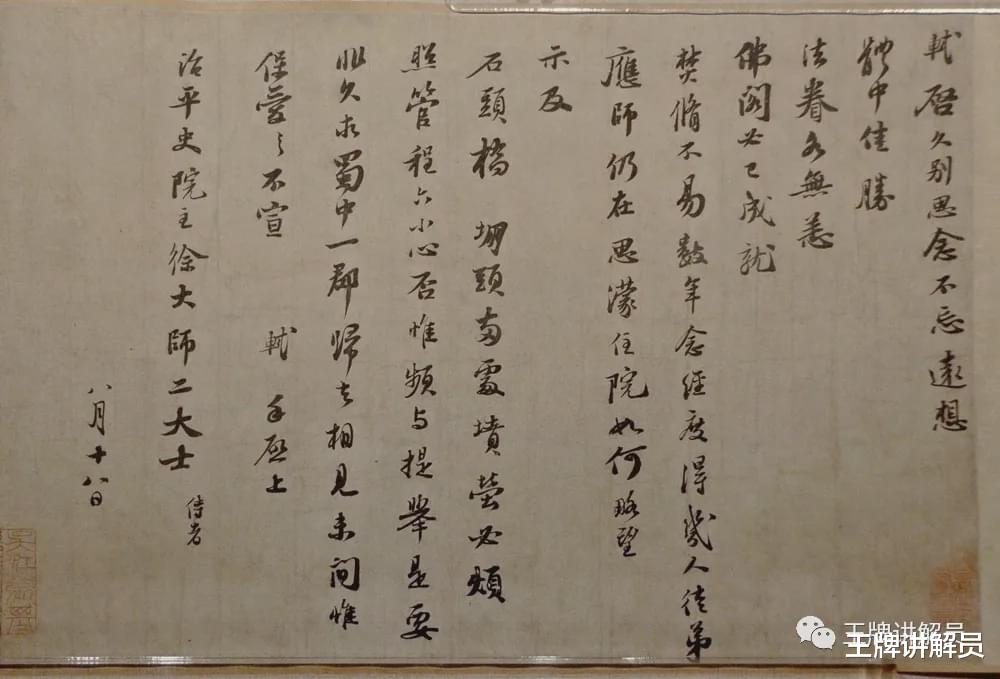 軾啓久别思念不忘遠想
體中佳勝
法眷各無恙
佛閣必已成就
焚脩不易數年念經度得幾人徒弟
應師仍在思濛住院如何略望
示及
石頭橋 堋頭兩處墳塋必煩
照管程六小心否惟頻与提舉是要
非久求蜀中一郡歸去相見未間惟
保愛之不宣 軾 手啓上
治平史院主徐大師二大士 侍者
八月十八日
王牌讲解员
王牌讲解员